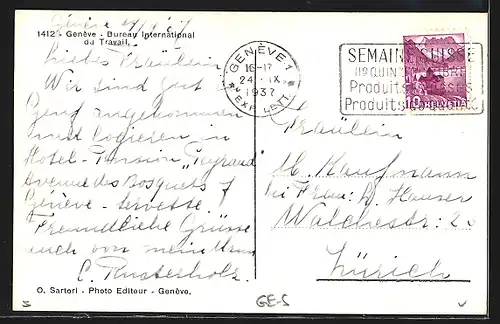 Genève 24/9/37
1412 - Genève - Bureau International
du Travail.
Liebes Fräulein
Wir sind gut in
Genf angekommen
und logieren in
Hotel-Pension "
Avenue des Bosquets 7
Genève - Servette.
Freundliche Grüsse
auch von
C. Rusterholz.
O. Sartori - Photo Editeur - Genève.
GENÈVE 1
16-17
24. IX
1937
EXP. LETT.
SEMAINE SUISSE
Produits
Produits
10 HELVETIA
Fräulein
M. Kaufmann
bei Frau: H. Hauser
Walchestr: 25
Zürich
GE-S